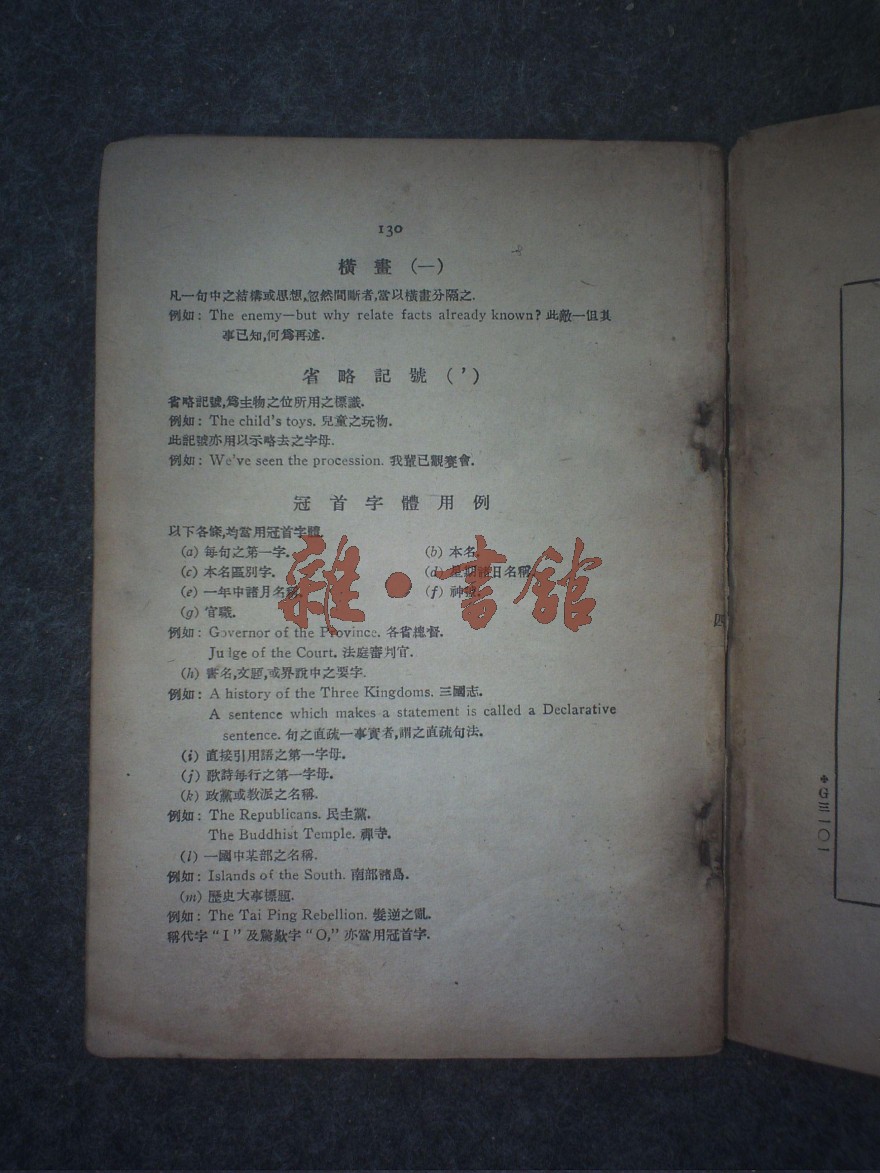 130
橫畫(—)
凡一句中之結構或思想,忽然間斷者,當以橫畫分隔之.
例如: The enemy—but why relate facts already known? 此敵—但其
事已知,何爲再述.
省略記號(')
省略記號,爲主物之位所用之標識.
例如: The child's toys. 兒童之玩物.
此記號亦用以示略去之字母.
例如: We've seen the procession. 我輩已觀賽會.
冠首字體用例
以下各條,均當用冠首字體.
(a) 每句之第一字. (b) 本名.
(c) 本名區別字. (d) 星期諸日名稱.
(e) 一年中諸月名稱. (f) 神號.
(g) 官職.
例如: Governor of the Province. 各省總督.
Judge of the Court. 法庭審判官.
(h) 書名,文題,或界說中之要字.
例如: A history of the Three Kingdoms. 三國志.
A sentence which makes a statement is called a Declarative
sentence. 句之直疏一事實者,謂之直疏句法.
(i) 直接引用語之第一字母.
(j) 歌詩每行之第一字母.
(k) 政黨或教派之名稱.
例如: The Republicans. 民主黨.
The Buddhist Temple. 禪寺.
(l) 一國中某部之名稱.
例如: Islands of the South. 南部諸島.
(m) 歷史大事標題.
例如: The Tai Ping Rebellion. 髮逆之亂.
稱代字 "I" 及驚歎字 "O," 亦當用冠首字.
雜·書館
四
G三一〇一